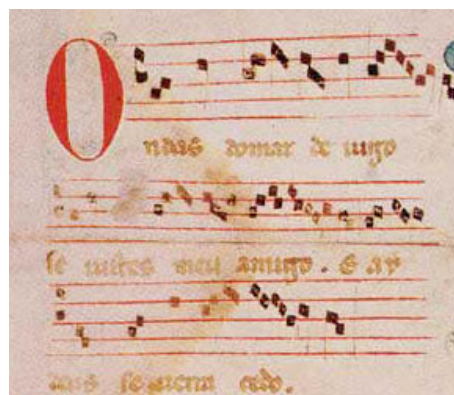 Ondas domar de uigo
se uistes meu amigo. E ay
deus se uerra cedo.